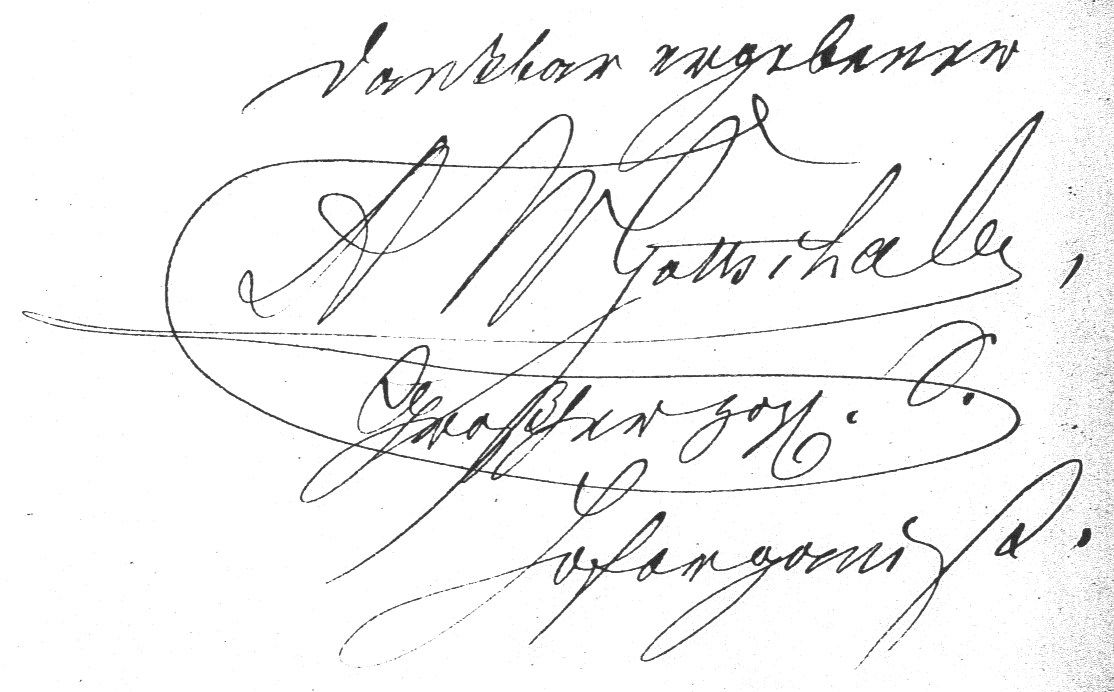 dankbar ergebener
A W Gottschalg,
Großherzogl. S.
Hoforganist.